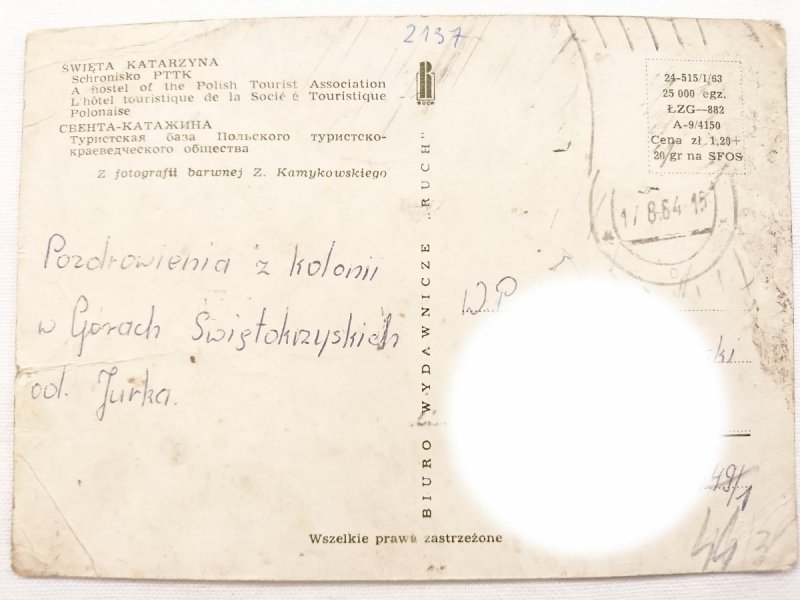 2137
ŚWIĘTA KATARZYNA
Schronisko PTTK
A hostel of the Polish Tourist Association
L'hôtel touristique de la Socié é Touristique
Polonaise
СВЕНТА-КАТАЖИНА
Туристская база Польского туристско-
краеведческого общества
Z fotografii barwnej Z. Kamykowskiego
Pozdrowienia z kolonii
w Górach Świętokrzyskich
od. Jurka.
RUCH
BIURO WYDAWNICZE „RUCH"
24-515/I/63
25 000 egz.
ŁZG—882
A-9/4150
Cena zł 1,20+
20 gr na SFOS
17 8.64-15
W.P.
ski
49/1
44 3
Wszelkie prawa zastrzeżone